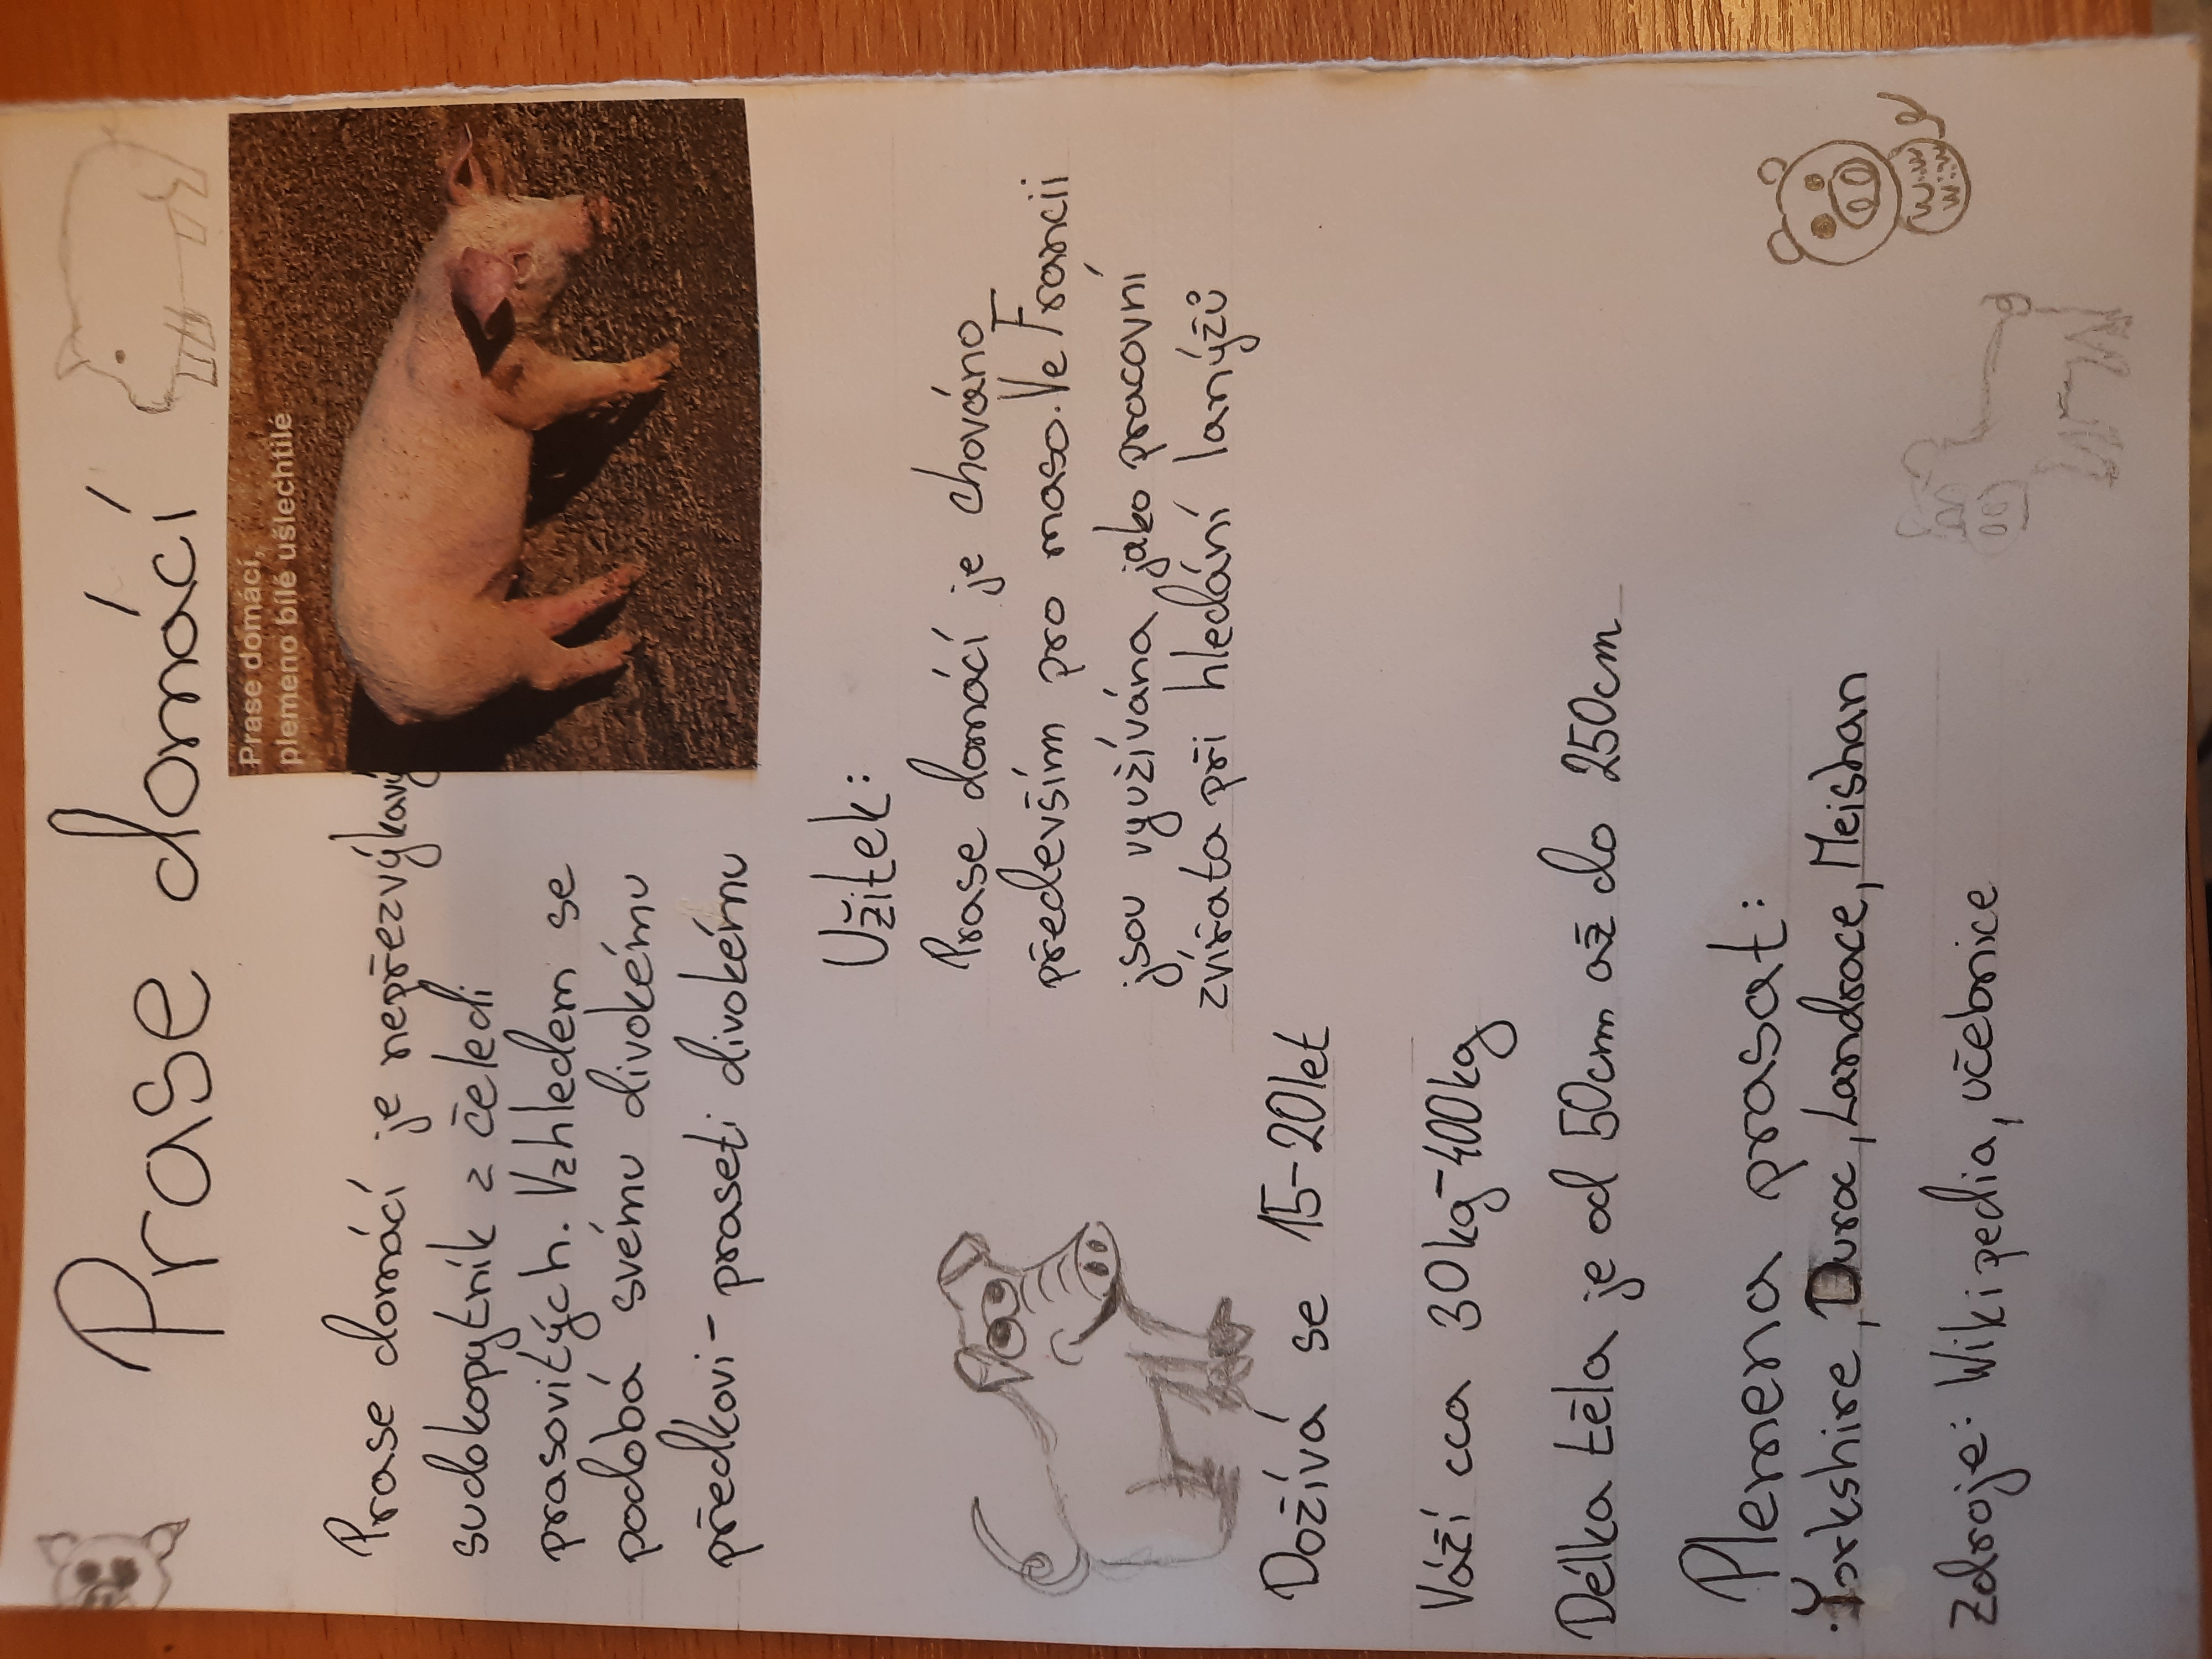 Prase domácí
Prase domácí,
plemeno bílé ušlechtilé
Prase domácí je nepřezvýkavý
sudokopytník z čeledi
prasovitých. Vzhledem se
podobá svému divokému
předkovi - praseti divokému
Užitek:
Prase domácí je chováno
především pro maso. Ve Francii
jsou využívána jako pracovní
zvířata při hledání lanýžů
Dožívá se 15-20let
Váží cca 30kg-400kg
Délka těla je od 50cm až do 250cm
Plemena prasat:
Yorkshire, Duroc, Landrace, Meishan
Zdroje: Wikipedia, učebnice